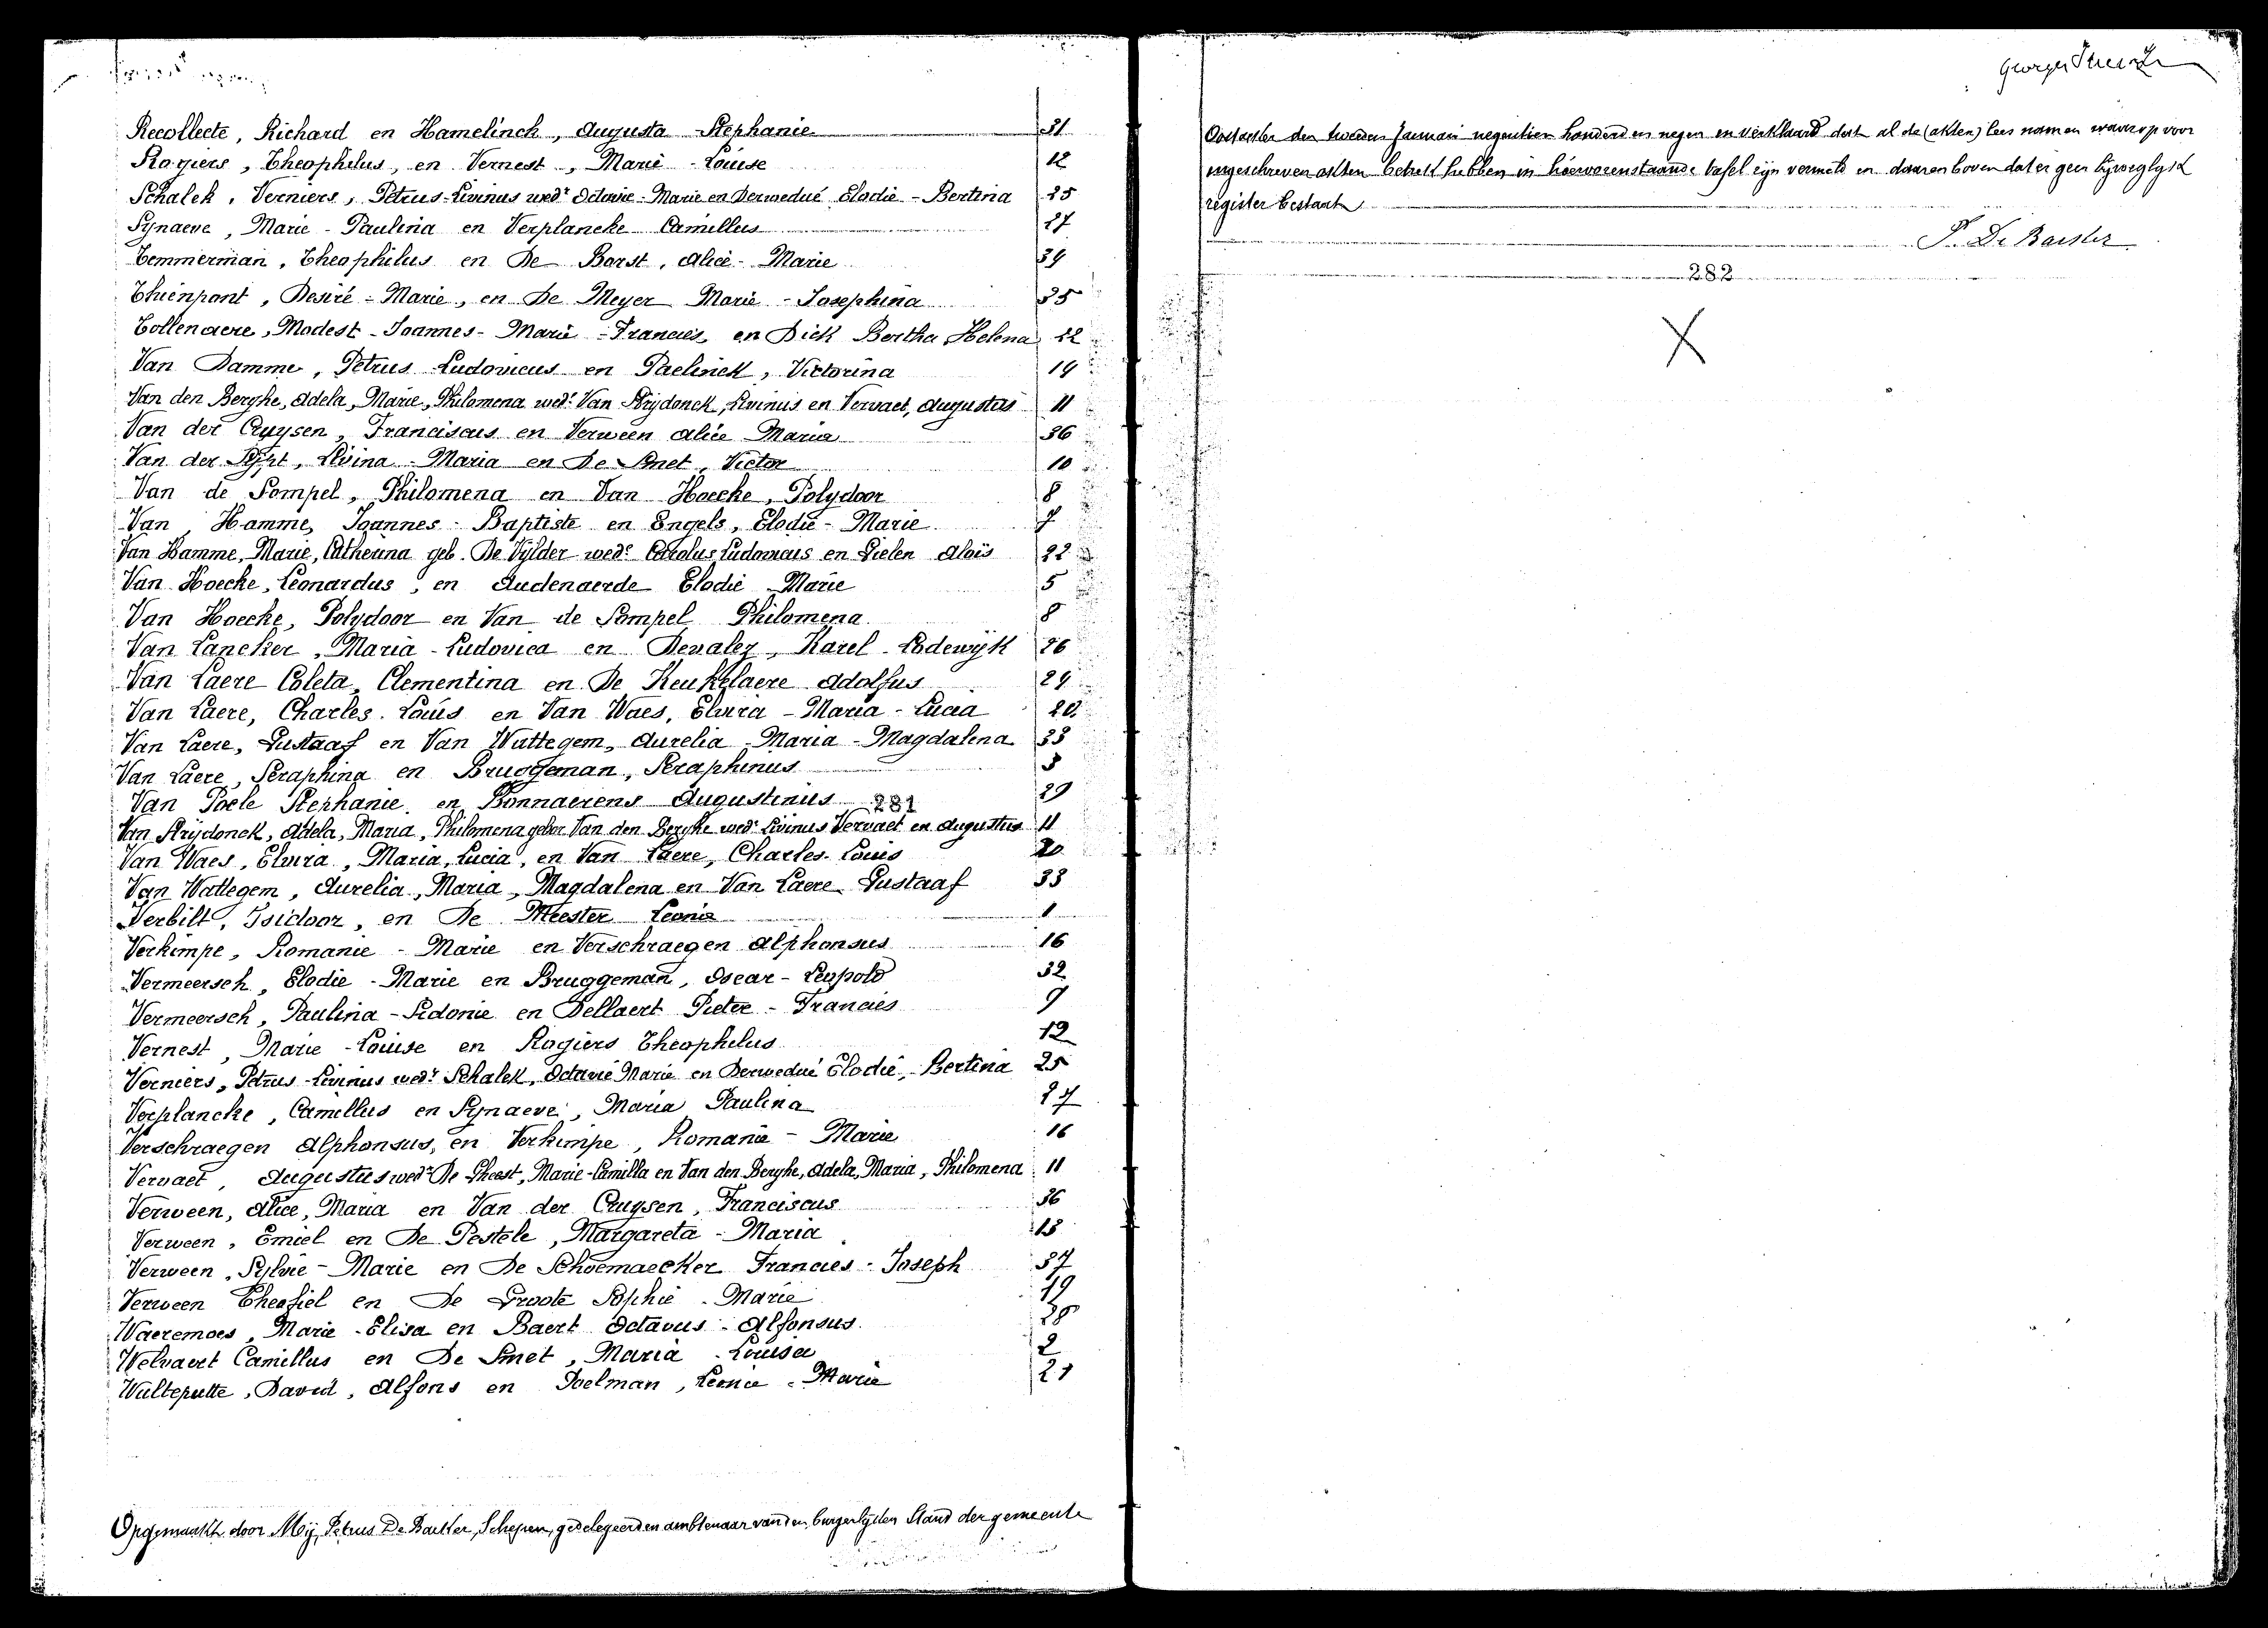 Recollecte, Richard en Hamelinck, Augusta Stephanie 31
Rogiers, Theophilus, en Vernest, Marie-Louise 12
Schalek, Verniers, Petrus-Livinus wedr Octavie-Marie en Derwedué Elodie-Bertina 25
Synaeve, Marie-Paulina en Verplancke Camillus 27
Temmerman, Theophilus en De Borst, Alice-Marie 34
Thienpont, Desiré-Marie, en De Meyer Marie-Josephina 35
Tollenaere, Modest-Joannes-Marie-Francies, en Dick Bertha Helena 22
Van Damme, Petrus Ludovicus en Paelinck, Victorina 14
Van den Berghe, Adela, Marie, Philomena wede Van Strijdonck, Livinus en Vervaet, Augustus 11
Van der Cruysen, Franciscus en Verween Alice Maria 36
Van der Sypt, Livina-Maria en De Smet, Victor 10
Van de Sompel, Philomena en Van Hoecke, Polydoor 8
Van Hamme, Joannes-Baptiste en Engels, Elodie-Marie 7
Van Hamme, Marie, Catherina geb. De Vylder wede Carolus Ludovicus en Gielen Aloïs 22
Van Hoecke, Leonardus, en Audenaerde Elodie Marie 5
Van Hoecke, Polydoor en Van de Sompel Philomena 8
Van Lancker, Maria-Ludovica en Devalez, Karel-Lodewijk 26
Van Laere Coleta, Clementina en De Keukelaere Adolfus 24
Van Laere, Charles-Louis en Van Waes, Elvira-Maria-Lucia 20
Van Laere, Gustaaf en Van Wattegem, Aurelia-Maria-Magdalena 33
Van Laere, Seraphina en Bruggeman, Seraphinus 3
Van Poele Stephanie en Bonnaerens Augustinus 281 29
Van Strijdonck, Adela, Maria, Philomena gebor Van den Berghe wede Livinus Vervaet en Augustus 11
Van Waes, Elvira, Maria, Lucia, en Van Laere, Charles-Louis 20
Van Wattegem, Aurelia, Maria, Magdalena en Van Laere Gustaaf 33
Verbilt, Isidoor, en De Meester Leonie 1
Verkimpe, Romanie-Marie en Verschraegen Alphonsus 16
Vermeersch, Elodie-Marie en Bruggeman, Oscar-Leopold 32
Vermeersch, Paulina-Sidonie en Dellaert Pieter-Francies 9
Vernest, Marie-Louise en Rogiers Theophilus 12
Verniers, Petrus-Livinus wedr Schalek, Octavie Marie en Derwedué Elodie, Bertina 25
Verplancke, Camillus en Synaeve, Maria Paulina 27
Verschraegen Alphonsus, en Verkimpe, Romanie-Marie 16
Vervaet, Augustus wedr De Gheest, Marie-Camilla en Van den Berghe, Adela, Maria, Philomena 11
Verween, Alice, Maria en Van der Cruysen, Franciscus 36
Verween, Emiel en De Pestele, Margareta-Maria 18
Verween, Sylvie-Marie en De Schoemaecker Francies-Joseph 37
Verween Theofiel en De Groote Sophie-Marie 19
Waeremoes, Marie-Elisa en Baert Octavus-Alfonsus 28
Welvaert Camillus en De Smet, Maria-Louisa 2
Wulteputte, David, Alfons en Poelman, Leonie-Marie 21
Opgemaakt door Mij, Petrus De Backer, Schepen, gedelegeerden ambtenaar van den burgerlijken Stand der gemeente
Oostacker den tweeden Januari negentien honderd en negen en verklaard dat al de (akten) lees namen waarop voor
ingeschreven akten betrek hebben in hiervorenstaande tafel zijn vermeld en daarenboven dat er geen bijvoeglijk
register bestaat
P. De Backer
282
X